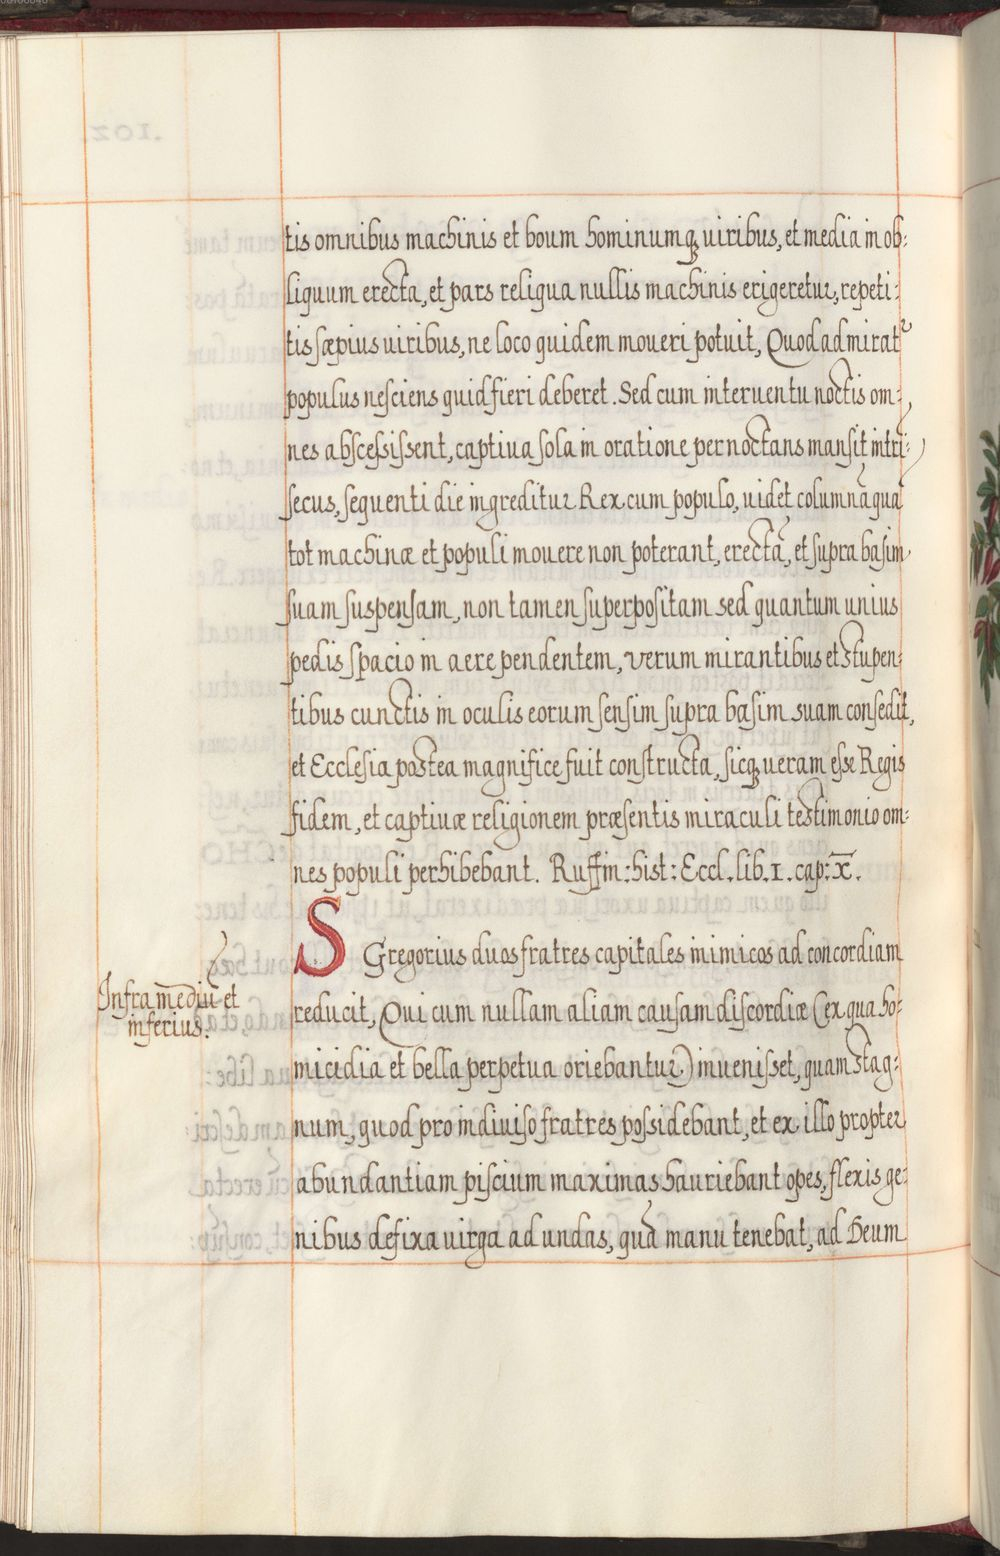 tis omnibus machinis et boum hominumq; uiribus, et media in ob-
liquum erecta, et pars reliqua nullis machinis erigeretur, repeti-
tis sæpius uiribus, ne loco quidem moueri potuit, Quod admirat᷑
populus nesciens quid fieri deberet. Sed cum interuentu noctis om-
nes abscessissent, captiua sola in oratione pernoctans mansit intri-
secus, sequenti die ingreditur Rex cum populo, uidet columnā quā
tot machinæ et populi mouere non poterant, erectā, et supra basim
suam suspensam, non tamen superpositam sed quantum unius
pedis spacio in aere pendentem, verum mirantibus et stupen-
tibus cunctis in oculis eorum sensim supra basim suam consedit,
et Ecclesia postea magnifice fuit constructa, sicq; ueram esse Regis
fidem, et captiuæ religionem præsentis miraculi testimonio om-
nes populi perhibebant. Ruffin: hist: Eccl. lib. 1. cap: x̄.
S Gregorius duos fratres capitales inimicos ad concordiam
Infra mediū et
inferius.
reducit, Qui cum nullam aliam causam discordiæ (ex qua ho-
micidia et bella perpetua oriebantur) inuenisset, quam stag-
num, quod pro indiuiso fratres possidebant, et ex illo propter
abundantiam piscium maximas hauriebant opes, flexis ge-
nibus defixa uirga ad undas, quā manu tenebat, ad Deum